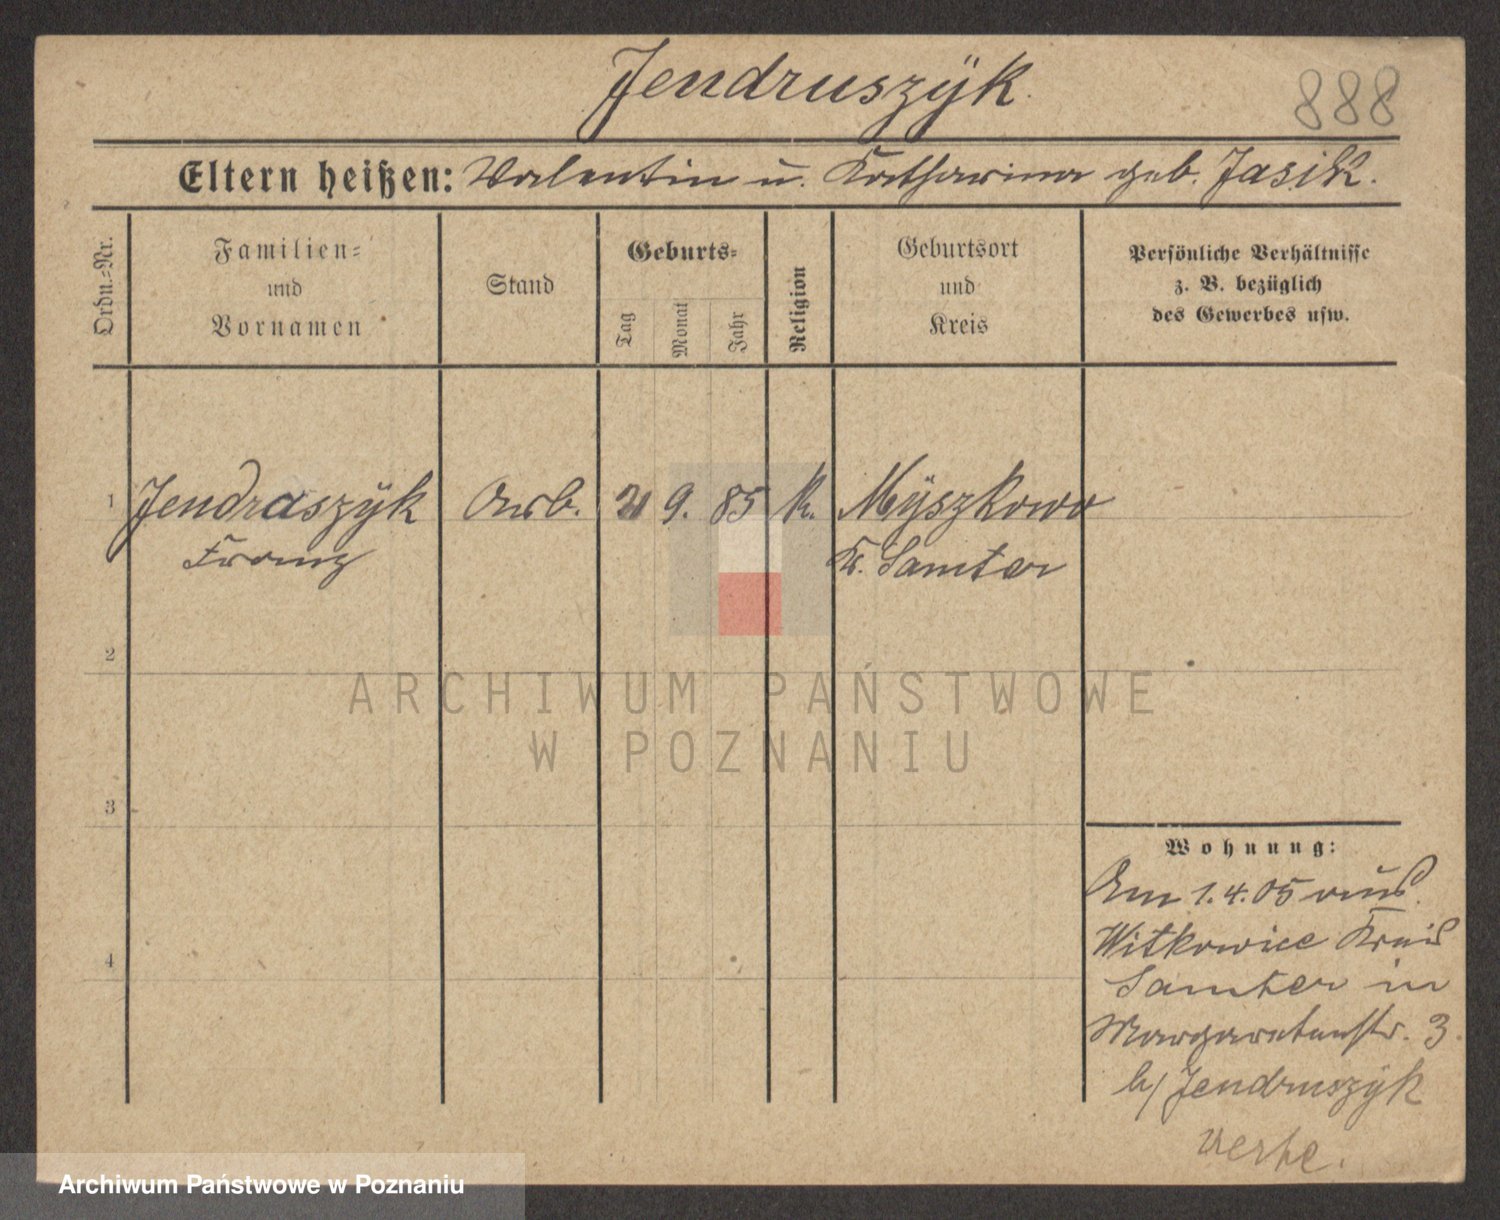 Jendruszÿk
888
Eltern heißen: Valentin u. Katharina geb. Jasik.
Ordn.-Nr.
Familien-
und
Vornamen
Stand
Geburts-
Tag
Monat
Jahr
Religion
Geburtsort
und
Kreis
Persönliche Verhältnisse
z. B. bezüglich
des Gewerbes usw.
1 Jendraszÿk Arb. 21 9. 85 k. Mÿszkowo
Franz Kr. Samter
2
ARCHIWUM PAŃSTWOWE
W POZNANIU
3
Wohnung:
Am 1.4.05 aus
4
Witkowice Kreis
Samter in
Margaretenstr. 3.
b/ Jendruszÿk
Archiwum Państwowe w Poznaniu